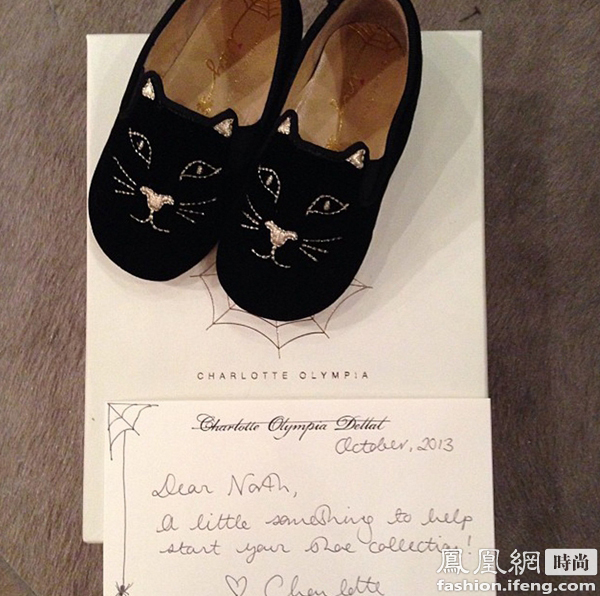 CHARLOTTE OLYMPIA
Charlotte Olympia Dellal
October, 2013
Dear North,
a little something to help
start your shoe collection!
♡ Charlotte
鳳凰網 時尚
fashion.ifeng.com